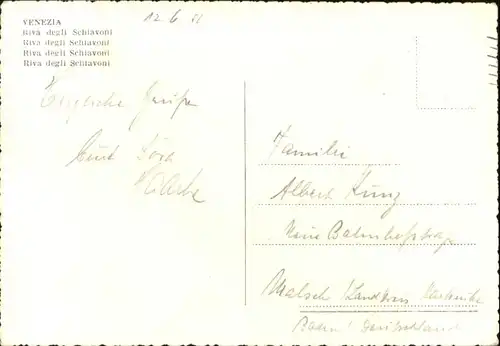 VENEZIA
Riva degli Schiavoni
Riva degli Schiavoni
Riva degli Schiavoni
Riva degli Schiavoni
12.6
Familie
Albert Kunz
Neue Bahnhofstr
Malsch Landkreis Karlsruhe
Baden Deutschland